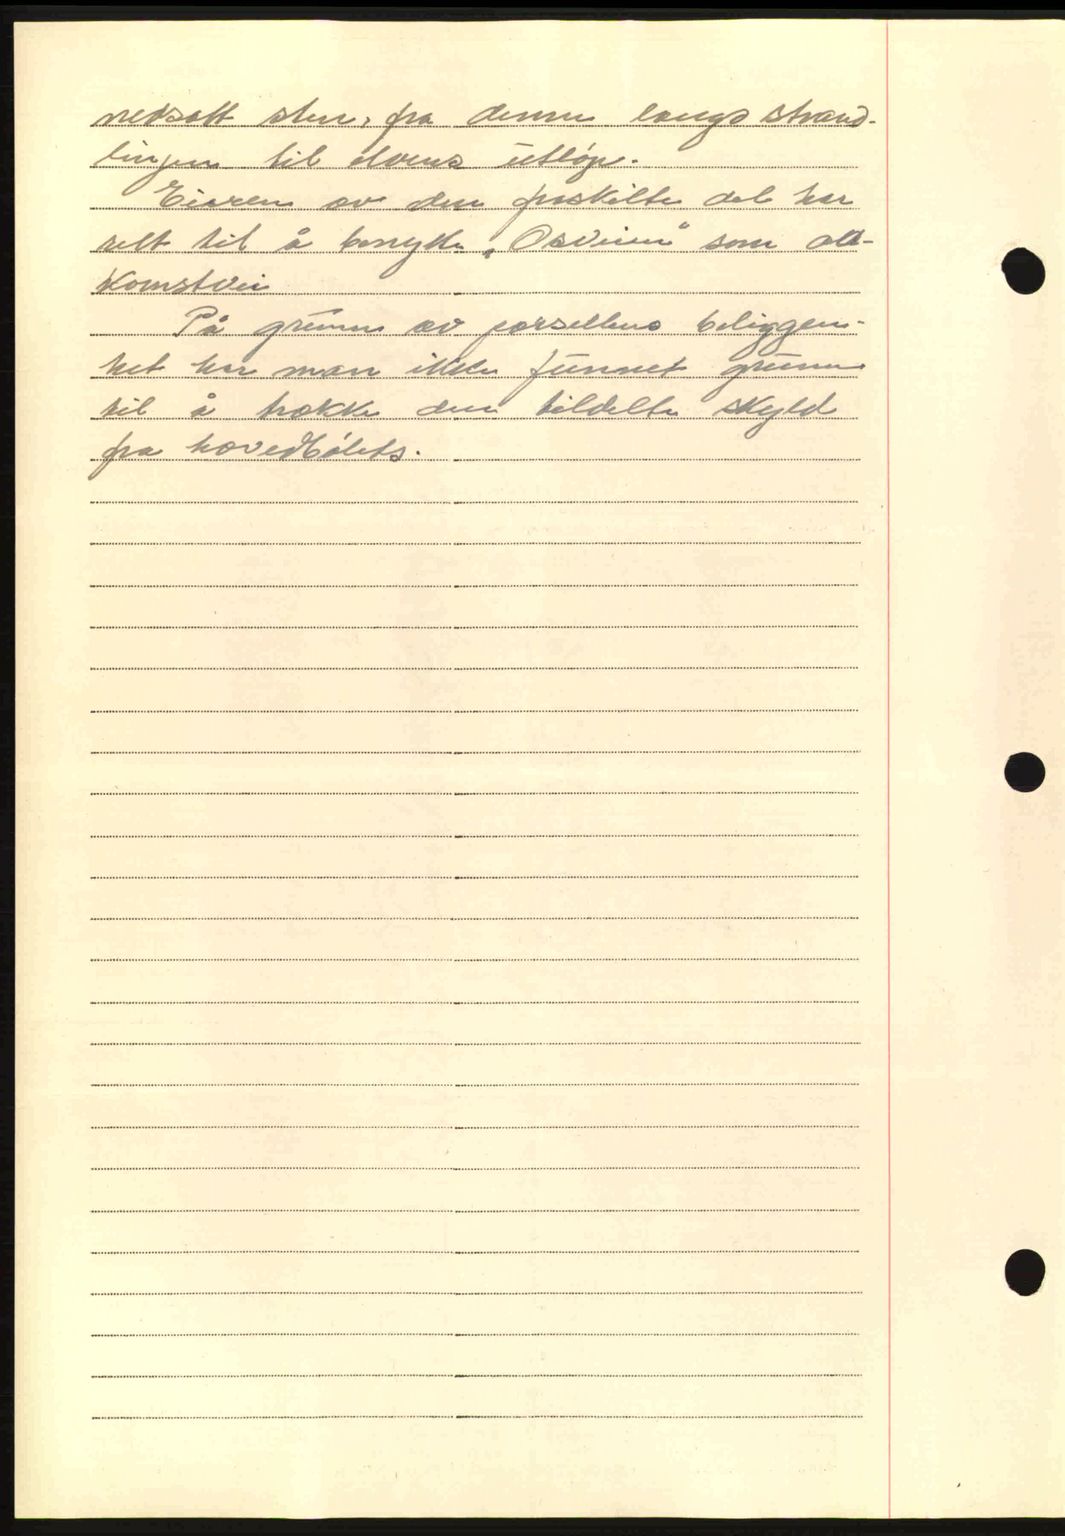 nedsatt sten, fra denne langs strand-
linjen til elvens utløp.
Eieren av den fraskilte del har
rett til å benytte „Osveien" som att-
komstvei
På grunn av parsellens beliggen-
het har man ikke funnet grunn
til å trekke den tildelte skyld
fra hovedbølets.